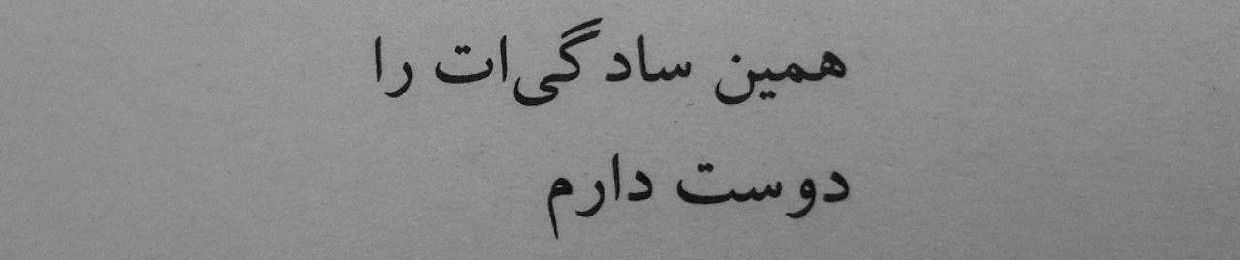 همین سادگی‌ات را
دوست دارم